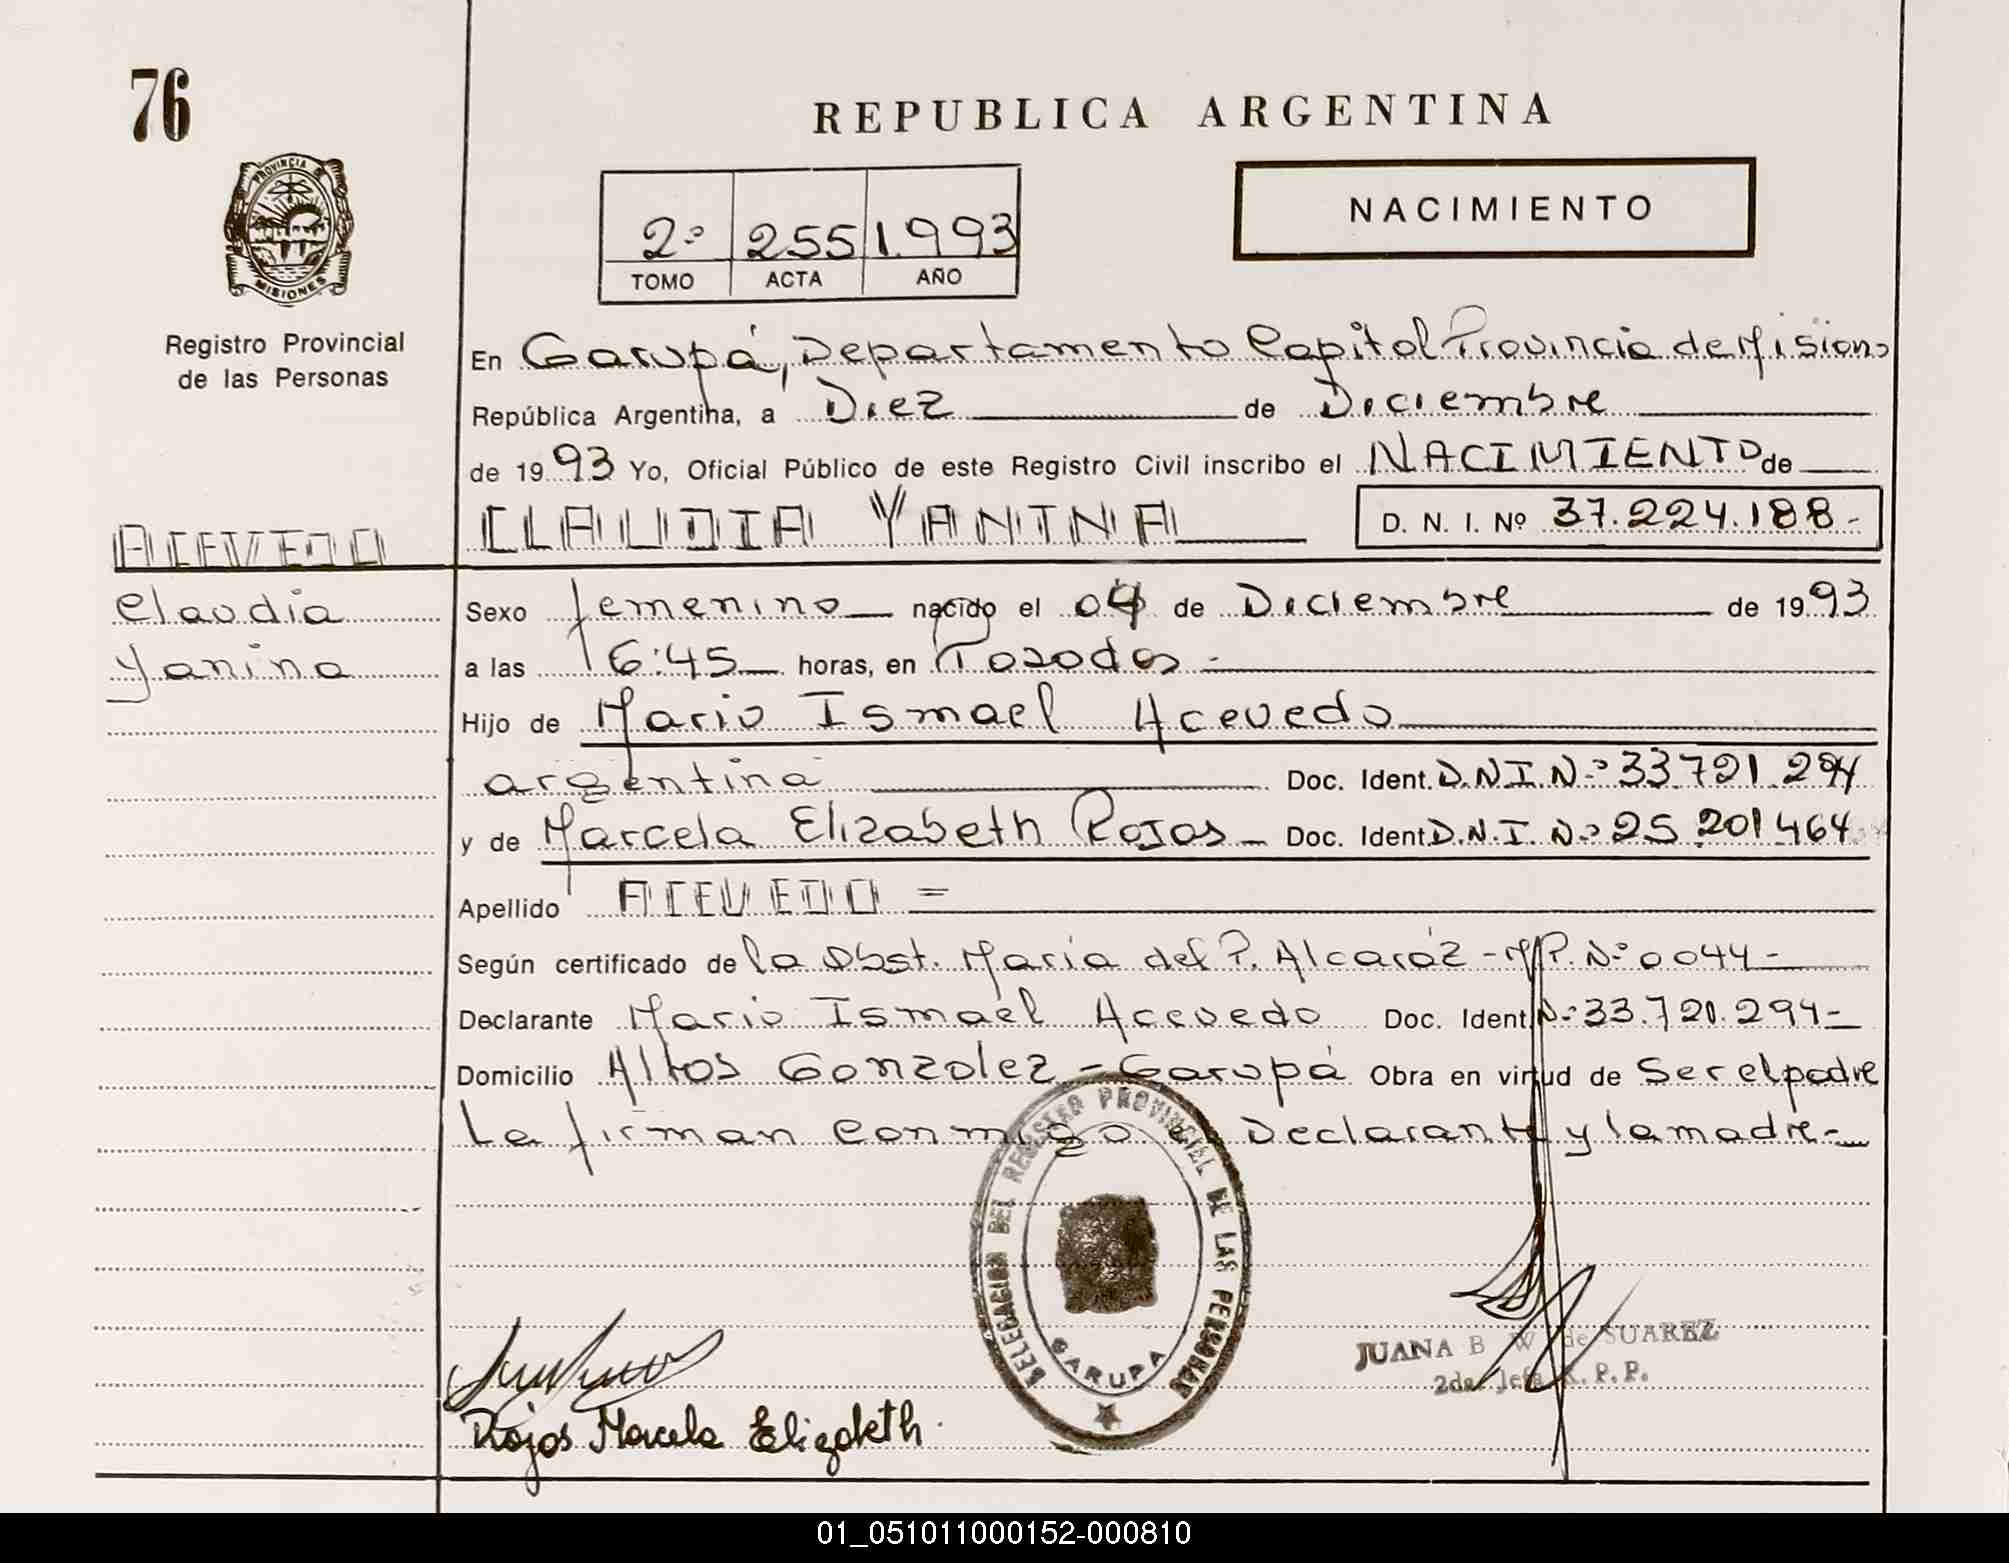 76
REPUBLICA ARGENTINA
PROVINCIA DE
MISIONES
Registro Provincial
de las Personas
2º 255 1.993
TOMO ACTA AÑO
NACIMIENTO
En Garupá, Departamento Capital Provincia de Misiones
República Argentina, a Diez de Diciembre
de 1993 Yo, Oficial Público de este Registro Civil inscribo el NACIMIENTO de
CLAUDIA YANINA D. N. I. Nº 37.224.188.-
ACEVEDO
Claudia
Yanina
Sexo femenino nacido el 04 de Diciembre de 1993
a las 16:45 horas, en Posadas -
Hijo de Mario Ismael Acevedo
argentina Doc. Ident. D.N.I.Nº 33.721.294
y de Marcela Elizabeth Rojas Doc. Ident. D.N.I.Nº 25.201.464
Apellido ACEVEDO =
Según certificado de la Obst. María del P. Alcaráz - M.P. Nº 0044-
Declarante Mario Ismael Acevedo Doc. Ident. Nº 33.721.294-
Domicilio Altos Gonzalez - Garupá Obra en virtud de Ser el padre
La firman conmigo el Declarante y la madre.-
DELEGACION DEL REGISTRO PROVINCIAL DE LAS PERSONAS
GARUPA
JUANA B W de SUAREZ
2da. Jefa R. P. P.
Rojas Marcela Elizabeth.
01_051011000152-000810